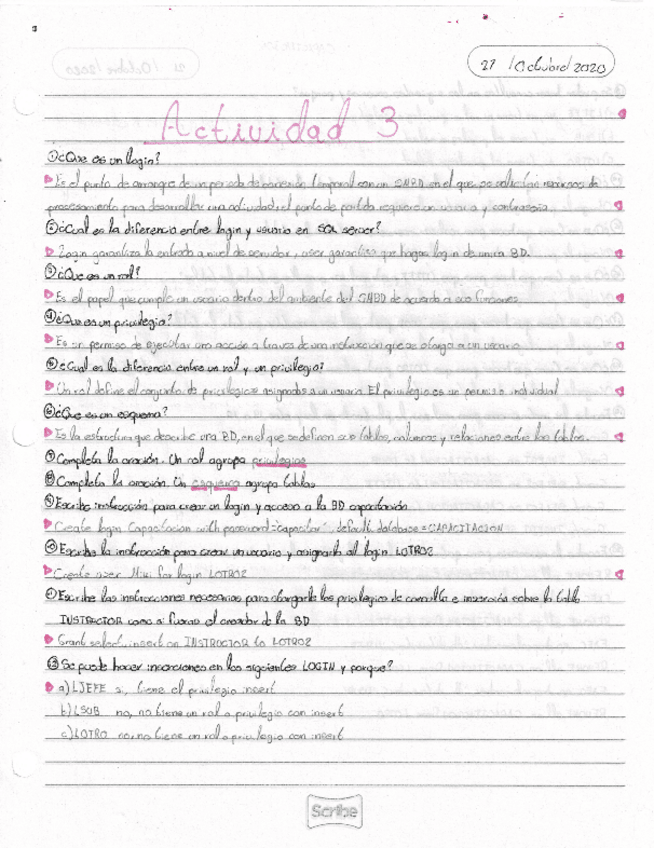 21 /Octubre/2020
Actividad 3
① ¿Que es un login?
Es el punto de arranque de un periodo de conexión temporal con un SMBD en el que se utilizan recursos de
procesamiento para desarrollar una actividad; el punto de partida requiere un usuario y contraseña
② ¿Cual es la diferencia entre login y usuario en SQL server?
Login garantiza la entrada a nivel de servidor, user garantiza que hagas login de una BD.
③ ¿Que es un rol?
Es el papel que cumple un usuario dentro del ambiente del SMBD de acuerdo a sus funciones.
④ ¿Que es un privilegio?
Es un permiso de ejecutar una acción a traves de una instrucción que se otorga a un usuario
⑤ ¿Cual es la diferencia entre un rol y un privilegio?
Un rol define el conjunto de privilegios asignados a un usuario. El privilegio es un permiso individual
⑥ ¿Que es un esquema?
Es la estructura que describe una BD, en el que se definen sus tablas, columnas y relaciones entre las tablas.
⑦ Completa la oración. Un rol agrupa privilegios
⑧ Completa la oración. Un esquema agrupa tablas
⑨ Escribe instrucción para crear un login y acceso a la BD capacitación
Create login Capacitacion with password="capacitar", default_database=CAPACITACION
⑩ Escribe la instrucción para crear un usuario y asignarlo al login LOTRO2
Create user Miri for login LOTRO2
⑪ Escribe las instrucciones necesarias para otorgarle los privilegios de consulta e inserción sobre la tabla
INSTRUCTOR como si fueras el creador de la BD
Grant select, insert on INSTRUCTOR to LOTRO2
⑫ Se puede hacer inserciones en los siguientes LOGIN y porque?
a) LJEFE si, tiene el privilegio insert
b) LSUB no, no tiene un rol o privilegio con insert
c) LOTRO no, no tiene un rol o privilegio con insert
Scribe